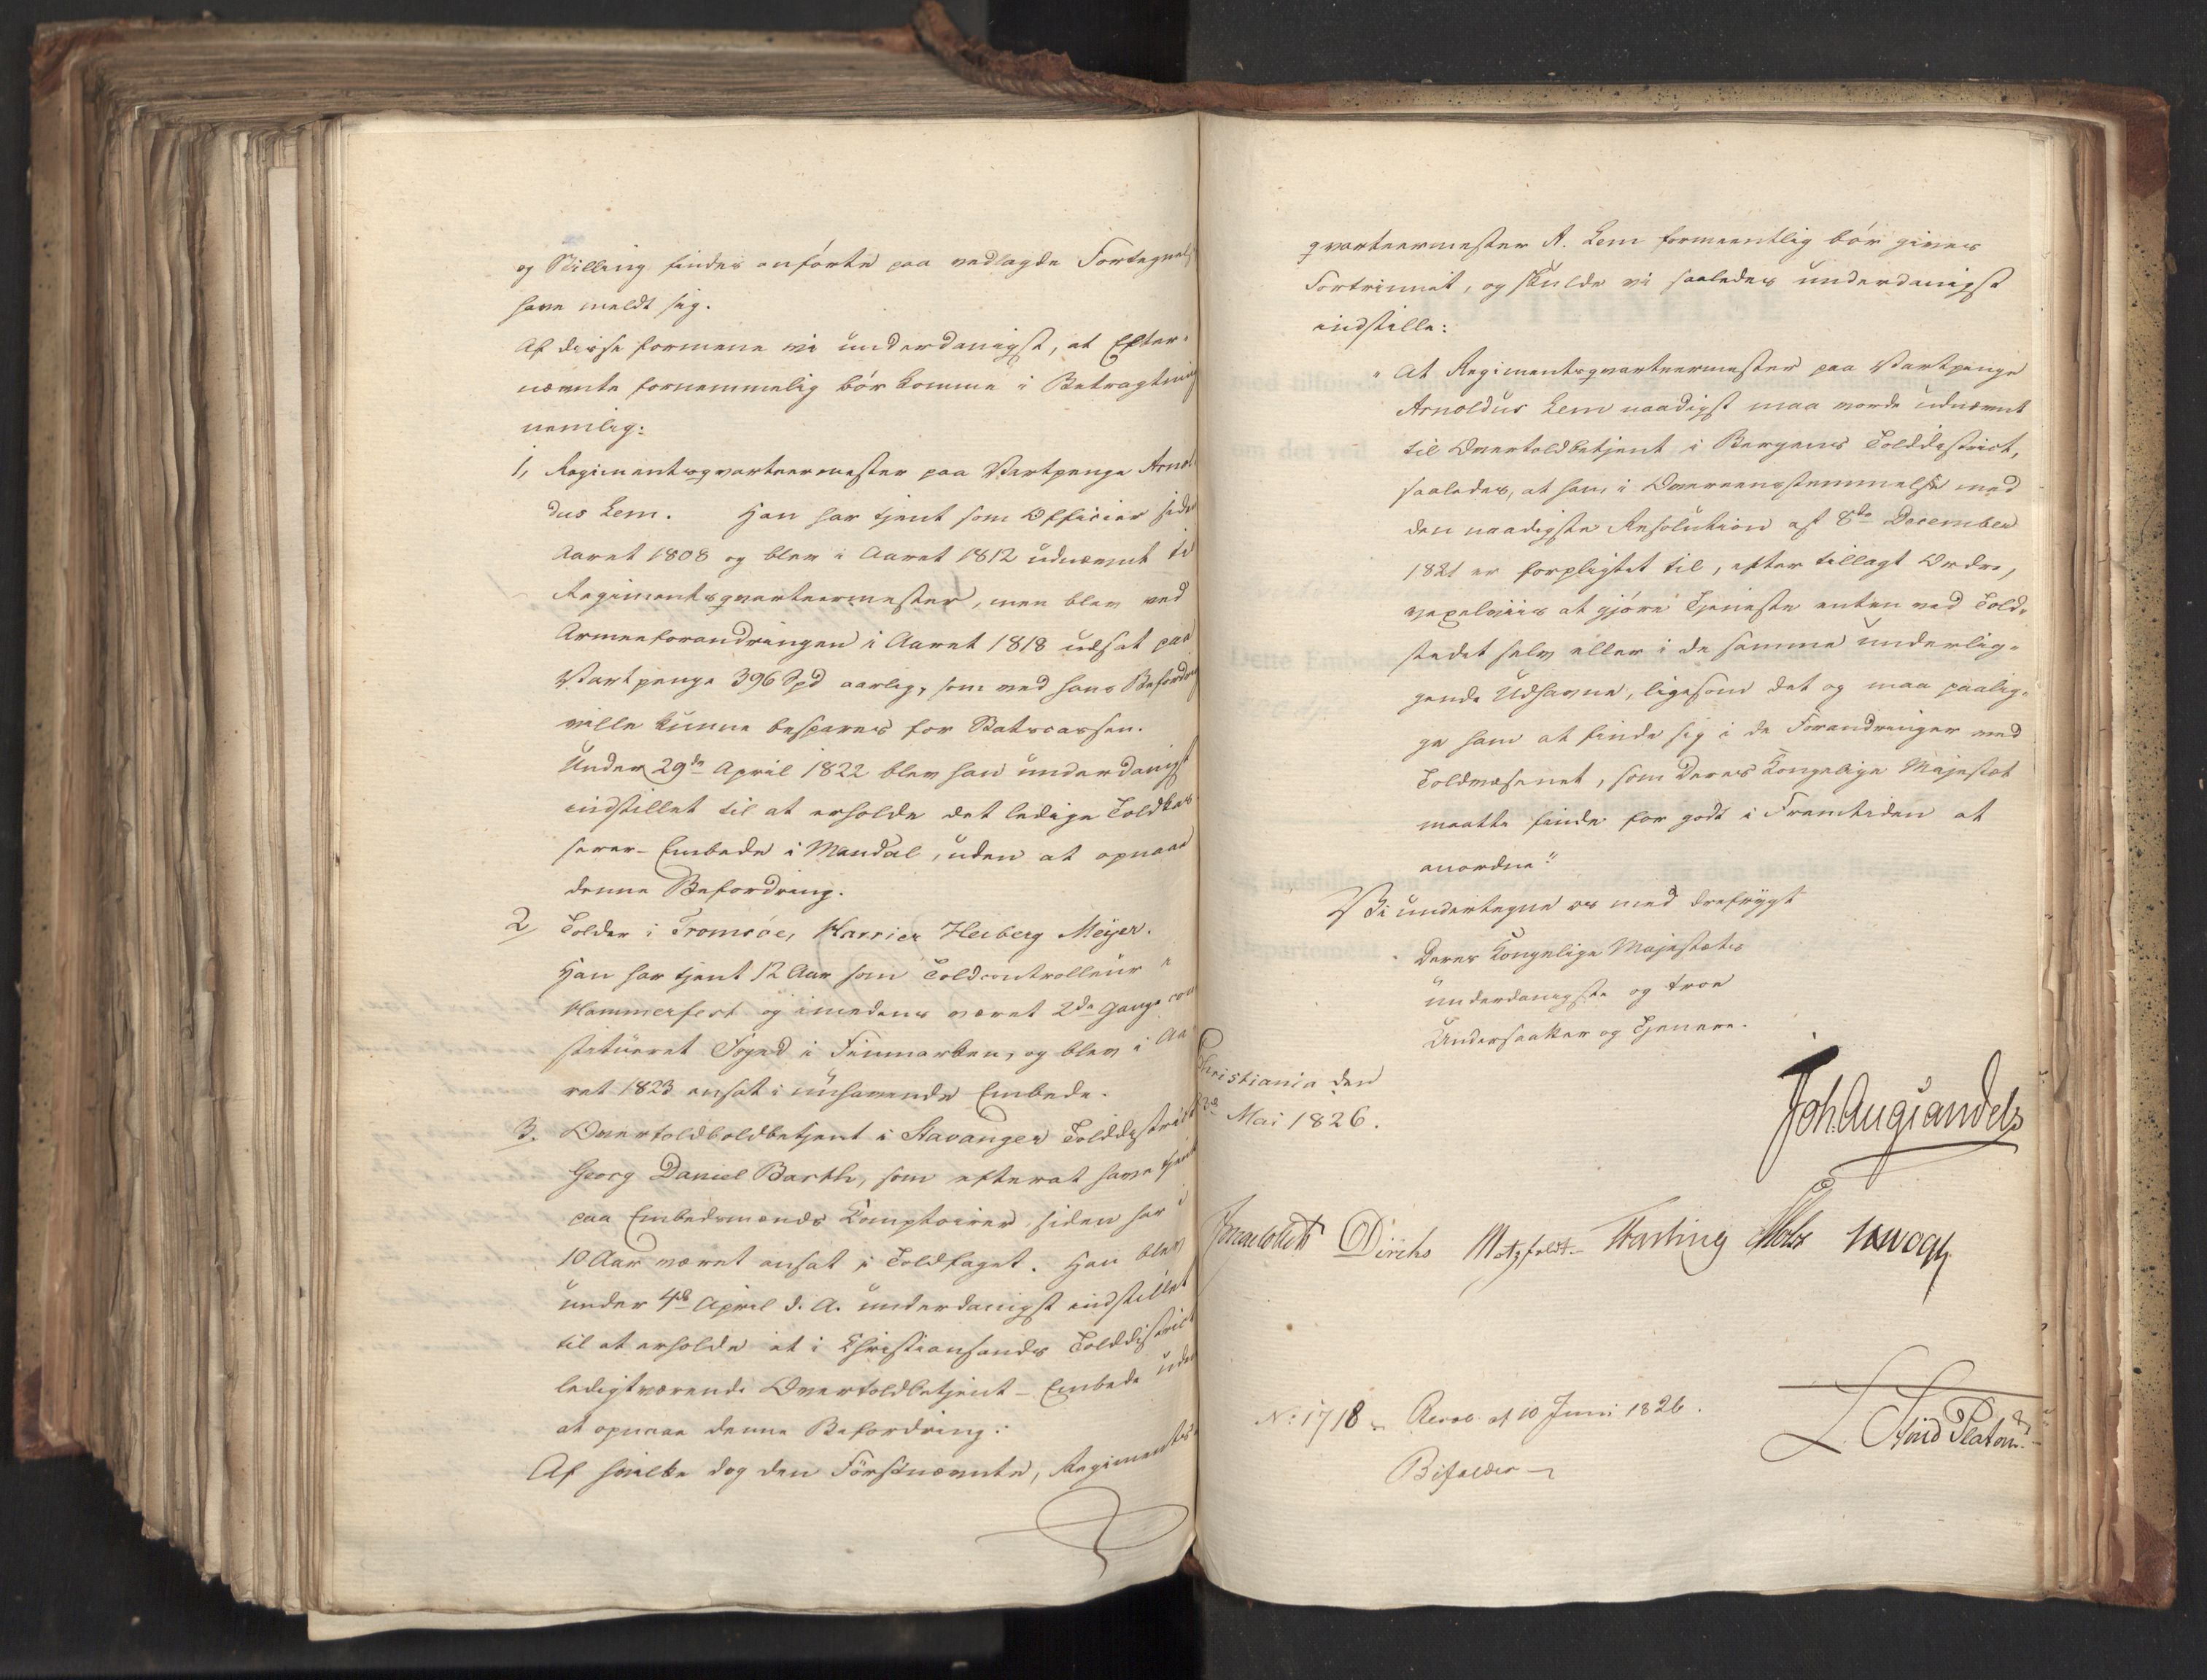 og Stilling findes anførte paa vedlagde Fortegnelse
have meldt sig.
Af disse formene vi underdanigst, at Efter-
nævnte fornemmelig bør komme i Betragtning
nemlig:
1, Regimentsqvarteermester paa Vartpenge Arnol-
dus Lem. Han har tjent som Officier siden
Aaret 1808 og blev i Aaret 1812 udnævnt til
Regimentsqvarteermester, men blev ved
Armeeforandringen i Aaret 1818 udsat paa
Vartpenge 396 Spd aarlig, som ved hans Befordring
ville kunne bespares for Statscassen.
Under 29de April 1822 blev han underdanigst
indstillet til at erholde det ledige Toldkas-
serer-Embede i Mandal, uden at opnaae
denne Befordring.
2, Tolder i Tromsøe, Harries Heiberg Meyer.
Han har tjent 12 Aar som Toldcontrolleur i
Hammerfest og imedens været 2de Gange con-
stitueret Foged i Finmarken, og blev i Aa-
ret 1823 ansat i iihavende Embede.
3. Overtoldboldbetjent i Stavanger Tolddistrict
Georg Daniel Barth, som efterat have tjent
paa Embedsmænds Comptoirer, siden har i
10 Aar været ansat i Toldfaget. Han blev
under 4de April d. A. underdanigst indstillet
til at erholde et i Christiansands Tolddistrict
ledigtværende Overtoldbetjent-Embede uden
at opnaae denne Befordring:
Af hvilke dog den Førstnævnte, Regiments-
qvarteermester A. Lem formeentlig bør gives
Fortrinnet, og skulde vi saaledes underdanigst
indstille:
"At Regimentsqvarteermester paa Vartpenge
Arnoldus Lem naadigst maa vorde udnævnt
til Overtoldbetjent i Bergens Tolddistrict,
saaledes, at han, i Overeensstemmelse med
den naadigste Resolution af 8de December
1821 er forpligtet til, efter tillagt Ordre,
vexelviis at gjøre Tjeneste enten ved Told-
stedet selv eller i de samme underlig-
gende Udhavne, ligesom det og maa paalig-
ge ham at finde sig i de Forandringer ved
Toldvæsenet, som Deres Kongelige Majestæt
maatte finde for godt i Fremtiden at
anordne."
Vi undertegne os med Ærefrygt
Deres Kongelige Majestæts
underdanigste og troe
Undersaatter og Tjenere.
Christiania den
3die Mai 1826.
Joh. Aug Sandels
Jonas Collett Diriks Motzfeldt. Fasting Holst Krogh
L. Stoud Platou
No: 1718. Resol. af 10 Juni 1826.
Bifaldes